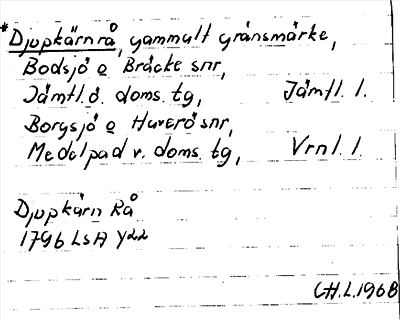 *Djupkärnrå, gammalt gränsmärke,
Bodsjö o Bräcke snr,
Jämtl. ö. doms. tg, Jämtl. l.
Borgsjö o Haverö snr,
Medelpad v. doms. tg, Vrnl. l.
Djupkärn Rå
1796 LSA Y22
CH.L.1968